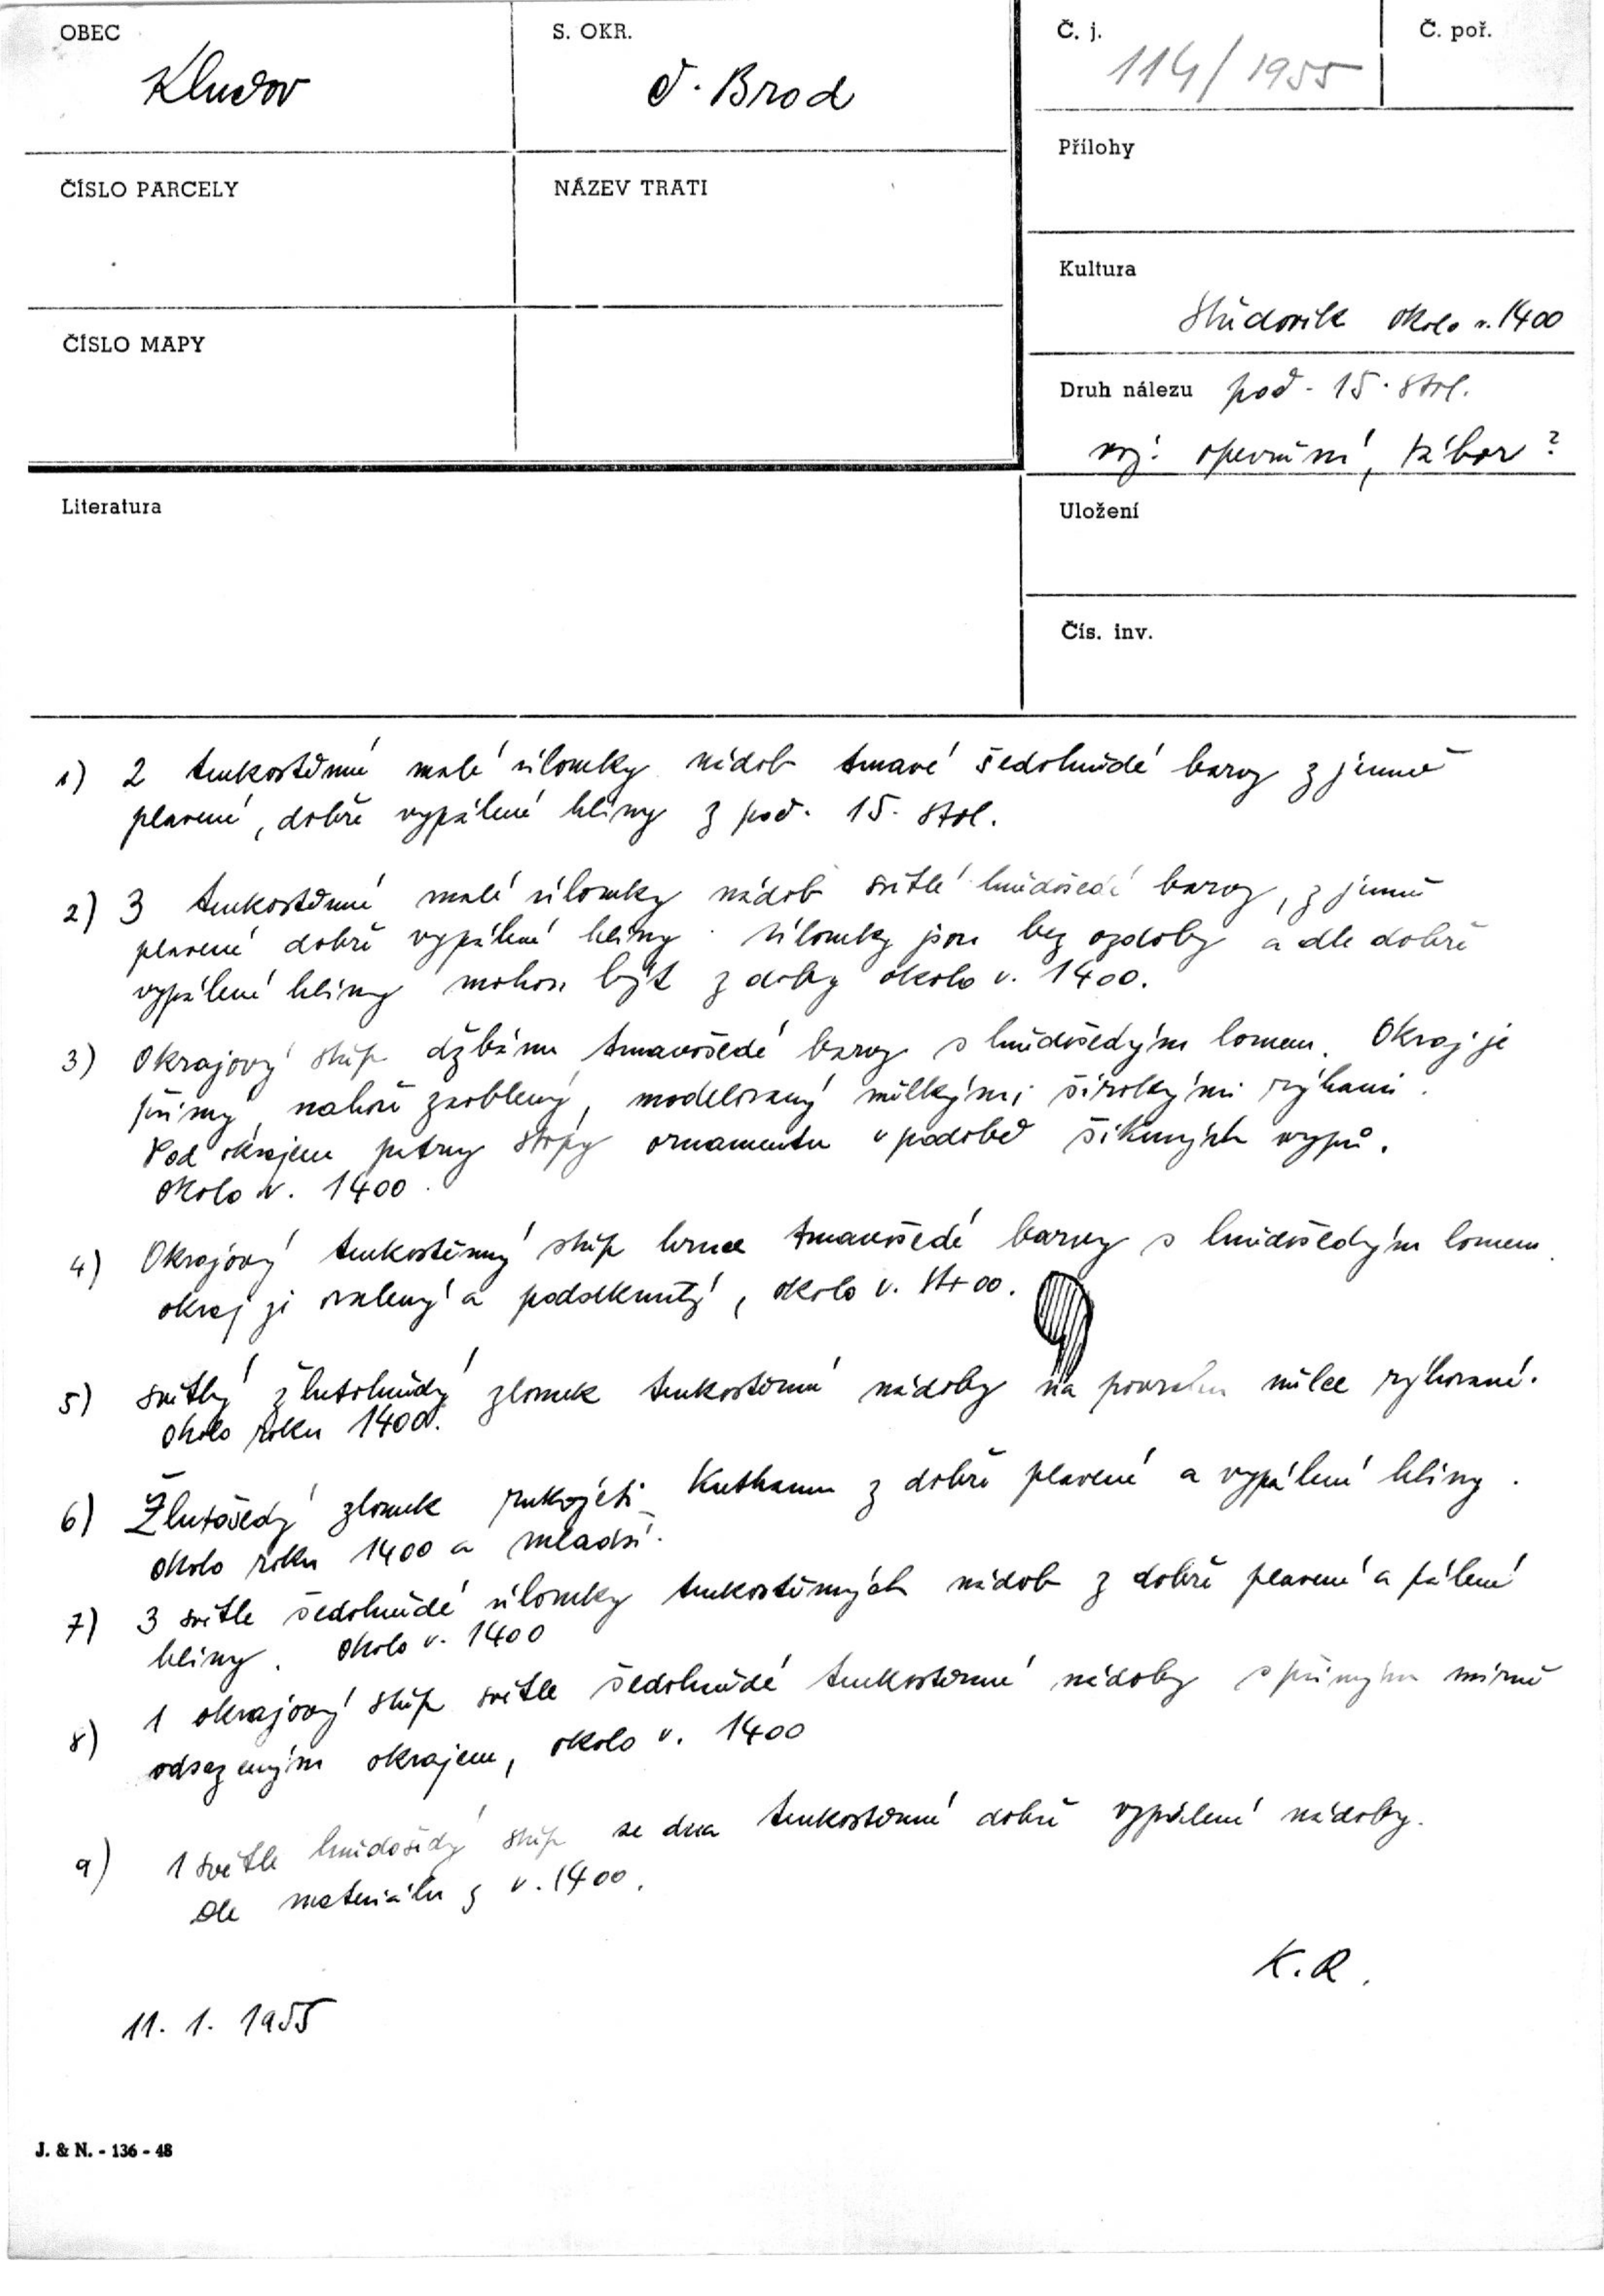 OBEC
Kludov
S. OKR.
Č. Brod
Č. j.
114/1955
Č. poř.
Přílohy
ČÍSLO PARCELY
NÁZEV TRATI
Kultura
Středověk okolo r. 1400
ČÍSLO MAPY
Druh nálezu poč. 15. stol.
voj. opevnění, tábor?
Literatura
Uložení
Čís. inv.
1) 2 tenkostěnné malé úlomky nádob tmavé šedohnědé barvy z jemně
plavené, dobře vypálené hlíny z poč. 15. stol.
2) 3 tenkostěnné malé úlomky nádob světlé hnědošedé barvy, z jemně
plavené dobře vypálené hlíny. Úlomky jsou bez ozdoby a dle dobře
vypálené hlíny mohou být z doby okolo r. 1400.
3) Okrajový střep džbánu tmavošedé barvy s hnědošedým lomem. Okraj je
přímý, nahoře zaoblený, modelovaný mělkými širokými rýhami.
Pod okrajem patrny stopy ornamentu v podobě šikmých vrypů.
Okolo r. 1400.
4) Okrajový tenkostěnný střep hrnce tmavošedé barvy s hnědošedým lomem.
okraj je ovalený a podseknutý, okolo r. 1400.
5) světlý žlutohnědý zlomek tenkostěnné nádoby na povrchu mělce rýhované.
Okolo roku 1400.
6) Žlutošedý zlomek rukojeti kuthanu z dobře plavené a vypálené hlíny.
okolo roku 1400 a mladší.
7) 3 světle šedohnědé úlomky tenkostěnných nádob z dobře plavené a pálené
hlíny. Okolo r. 1400
8) 1 okrajový střep světle šedohnědé tenkostěnné nádoby s přímým mírně
odsazeným okrajem, okolo r. 1400
9) 1 světle hnědošedý střep ze dna tenkostěnné dobře vypálené nádoby.
Dle materiálu z r. 1400.
K. R.
11. 1. 1955
J. & N. - 136 - 48